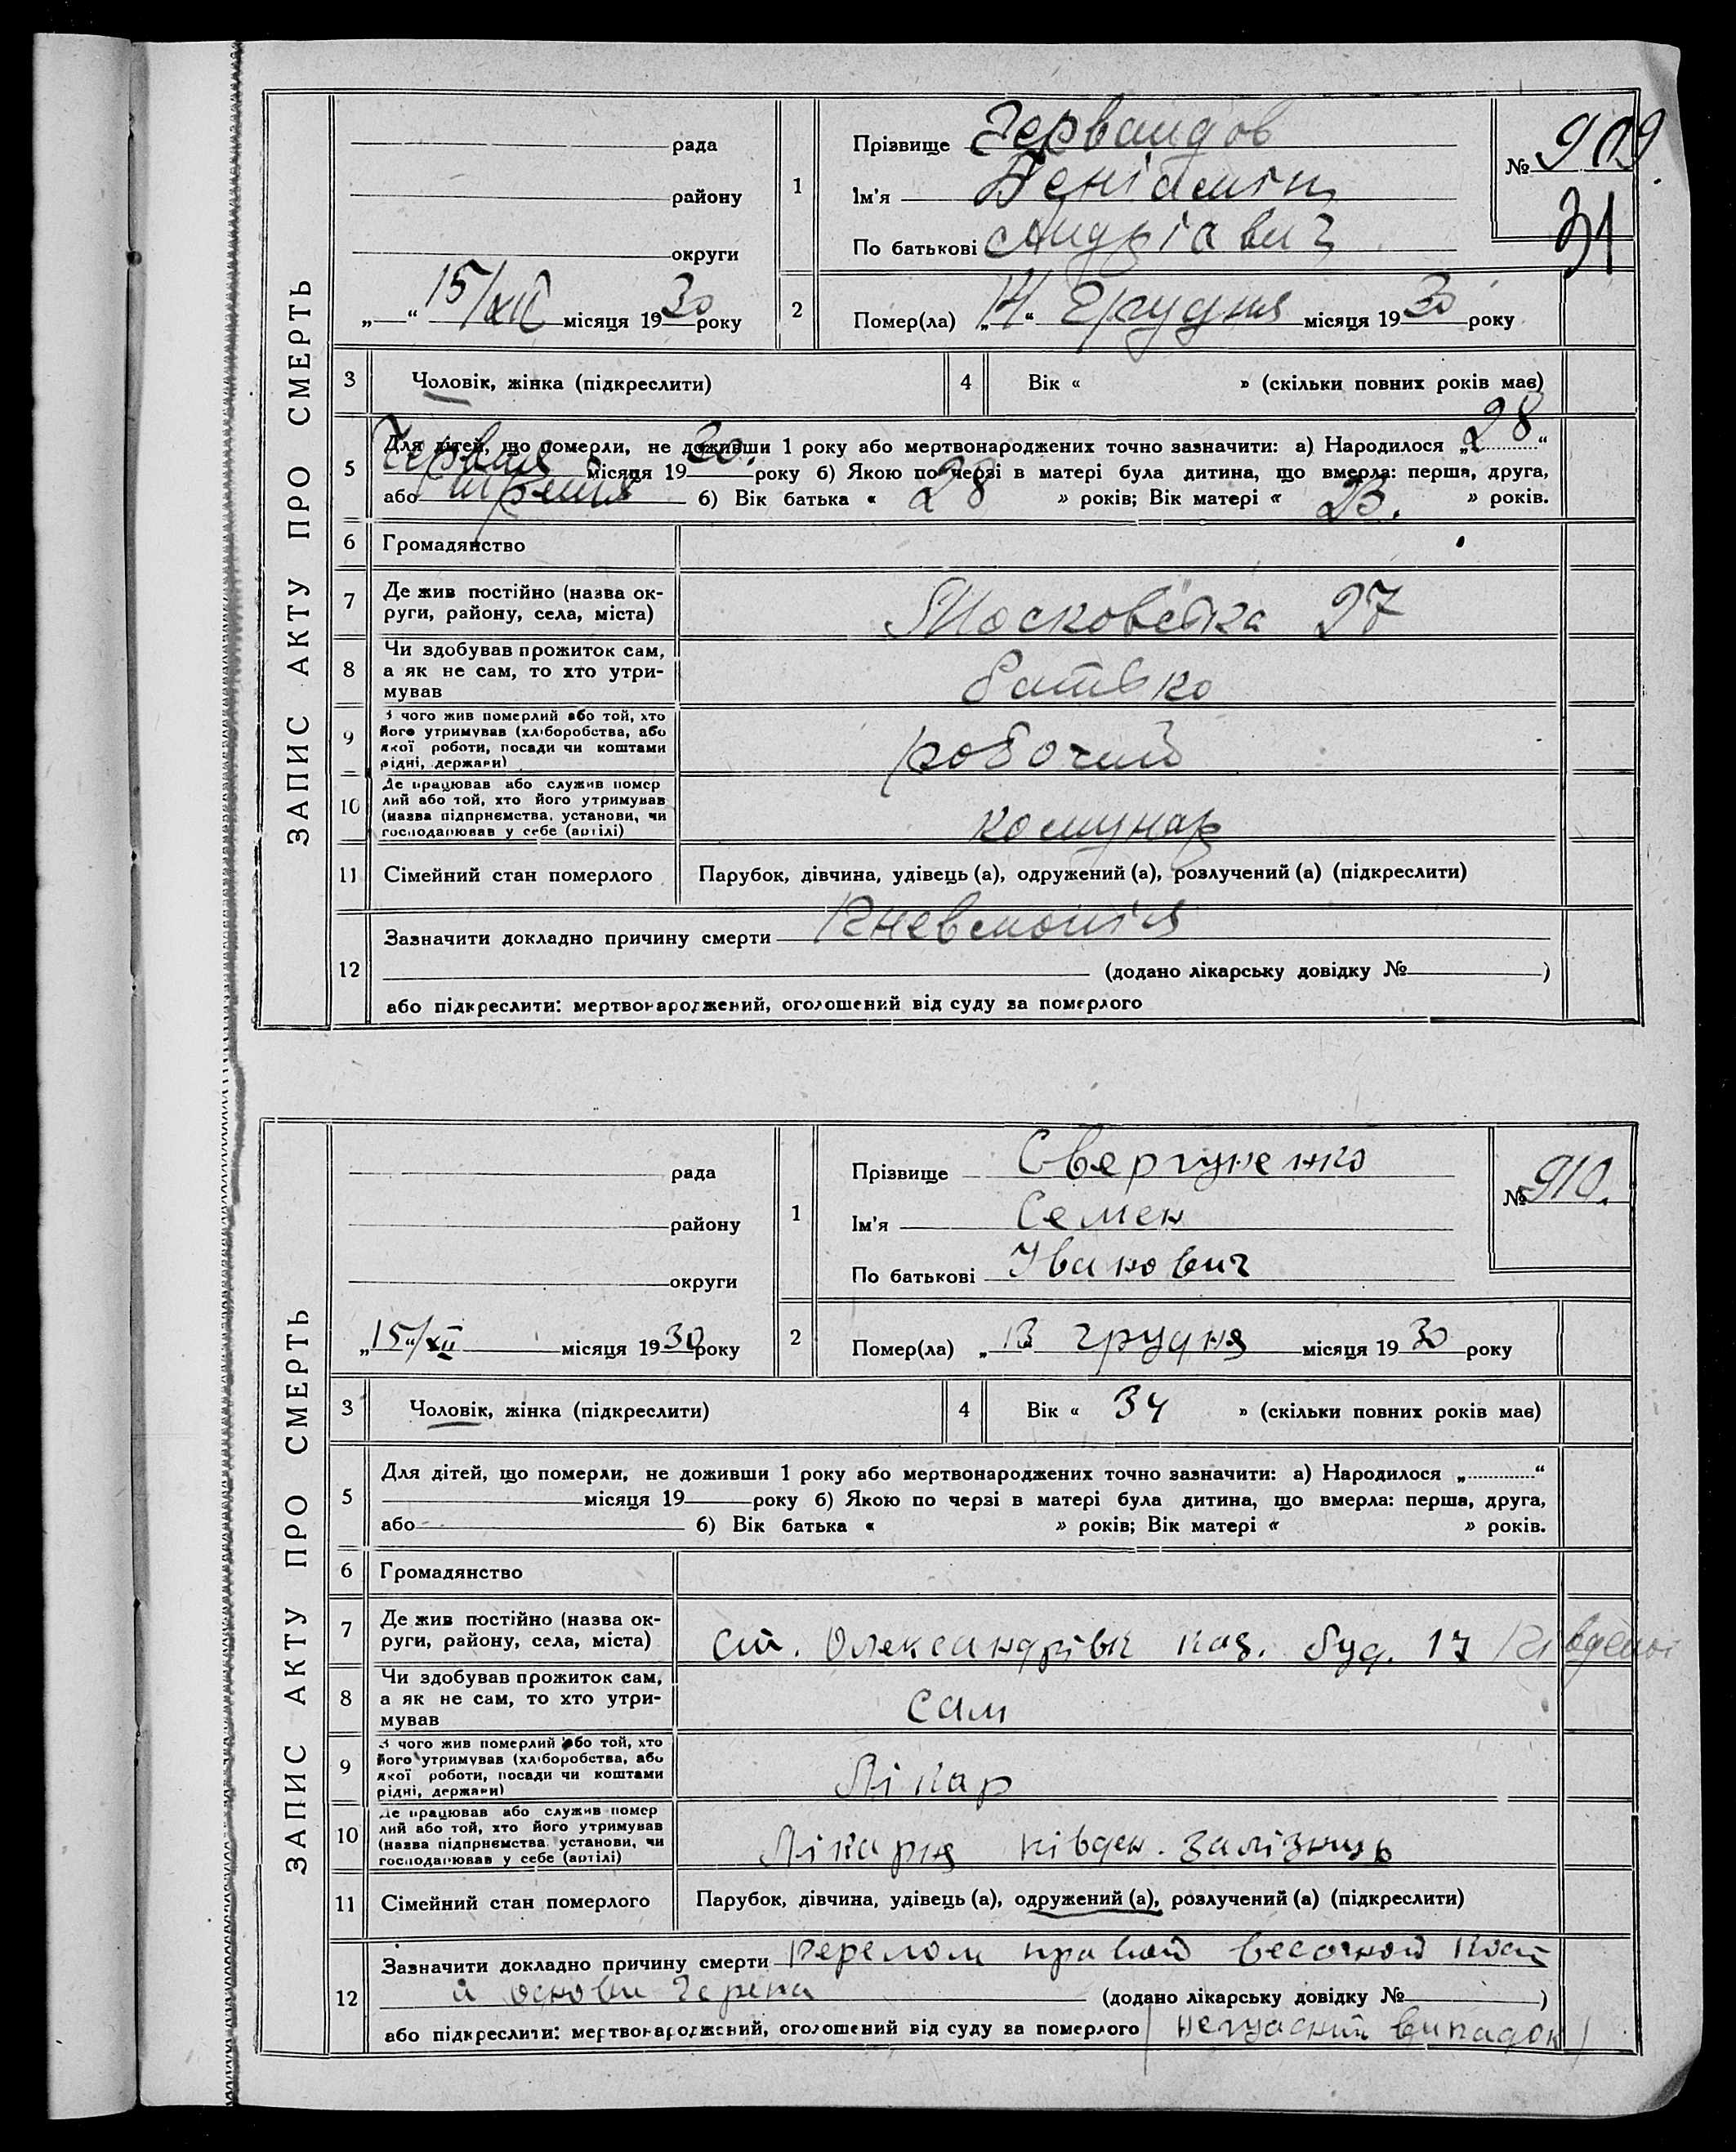 ЗАПИС АКТУ ПРО СМЕРТЬ
рада
району
округи
15/XII місяця 1930 року
1
Прізвище Червандов
Ім'я Веніамін
По батькові
№ 909
31
2
Помер(ла) „14“ Грудня місяця 1930 року
3 Чоловік, жінка (підкреслити)
4 Вік « » (скільки повних років має)
5 Для дітей, що померли, не доживши 1 року або мертвонароджених точно зазначити: а) Народилося „28“
Червня місяця 1930. року б) Якою по черзі в матері була дитина, що вмерла: перша, друга,
або третя б) Вік батька « 28 » років; Вік матері « 23. » років.
6 Громадянство
7 Де жив постійно (назва ок-
руги, району, села, міста) Московська 27
8 Чи здобував прожиток сам,
а як не сам, то хто утри-
мував батько
9 З чого жив померлий або той, хто
його утримував (хліборобства, або
якої роботи, посади чи коштами
рідні, держави) робочий
10 Де працював або служив помер
лий або той, хто його утримував
(назва підприємства, установи, чи
господарював у себе (артілі) комунар
11 Сімейний стан померлого Парубок, дівчина, удівець (а), одружений (а), розлучений (а) (підкреслити)
12 Зазначити докладно причину смерти Пневмонія
(додано лікарську довідку № )
або підкреслити: мертвонароджений, оголошений від суду за померлого
ЗАПИС АКТУ ПРО СМЕРТЬ
рада
району
округи
„15“/XII місяця 1930 року
1
Прізвище Свергуненко
Ім'я Семен
По батькові Іванович
№ 910.
2
Помер(ла) „13 грудня місяця 1930 року
3 Чоловік, жінка (підкреслити)
4 Вік « 34 » (скільки повних років має)
5 Для дітей, що померли, не доживши 1 року або мертвонароджених точно зазначити: а) Народилося „ “
місяця 19 року б) Якою по черзі в матері була дитина, що вмерла: перша, друга,
або б) Вік батька « » років; Вік матері « » років.
6 Громадянство
7 Де жив постійно (назва ок-
руги, району, села, міста) ст. Олександрівк каз. буд. 17 Південої
8 Чи здобував прожиток сам,
а як не сам, то хто утри-
мував сам
9 З чого жив померлий або той, хто
його утримував (хліборобства, або
якої роботи, посади чи коштами
рідні, держави) Лікар
10 Де працював або служив помер
лий або той, хто його утримував
(назва підприємства, установи, чи
господарював у себе (артілі) Лікарня півден. залізниць
11 Сімейний стан померлого Парубок, дівчина, удівець (а), одружений (а), розлучений (а) (підкреслити)
12 Зазначити докладно причину смерти перелом правой весочной кост
и основи черепа (додано лікарську довідку № )
або підкреслити: мертвонароджений, оголошений від суду за померлого (нещасний випадок)